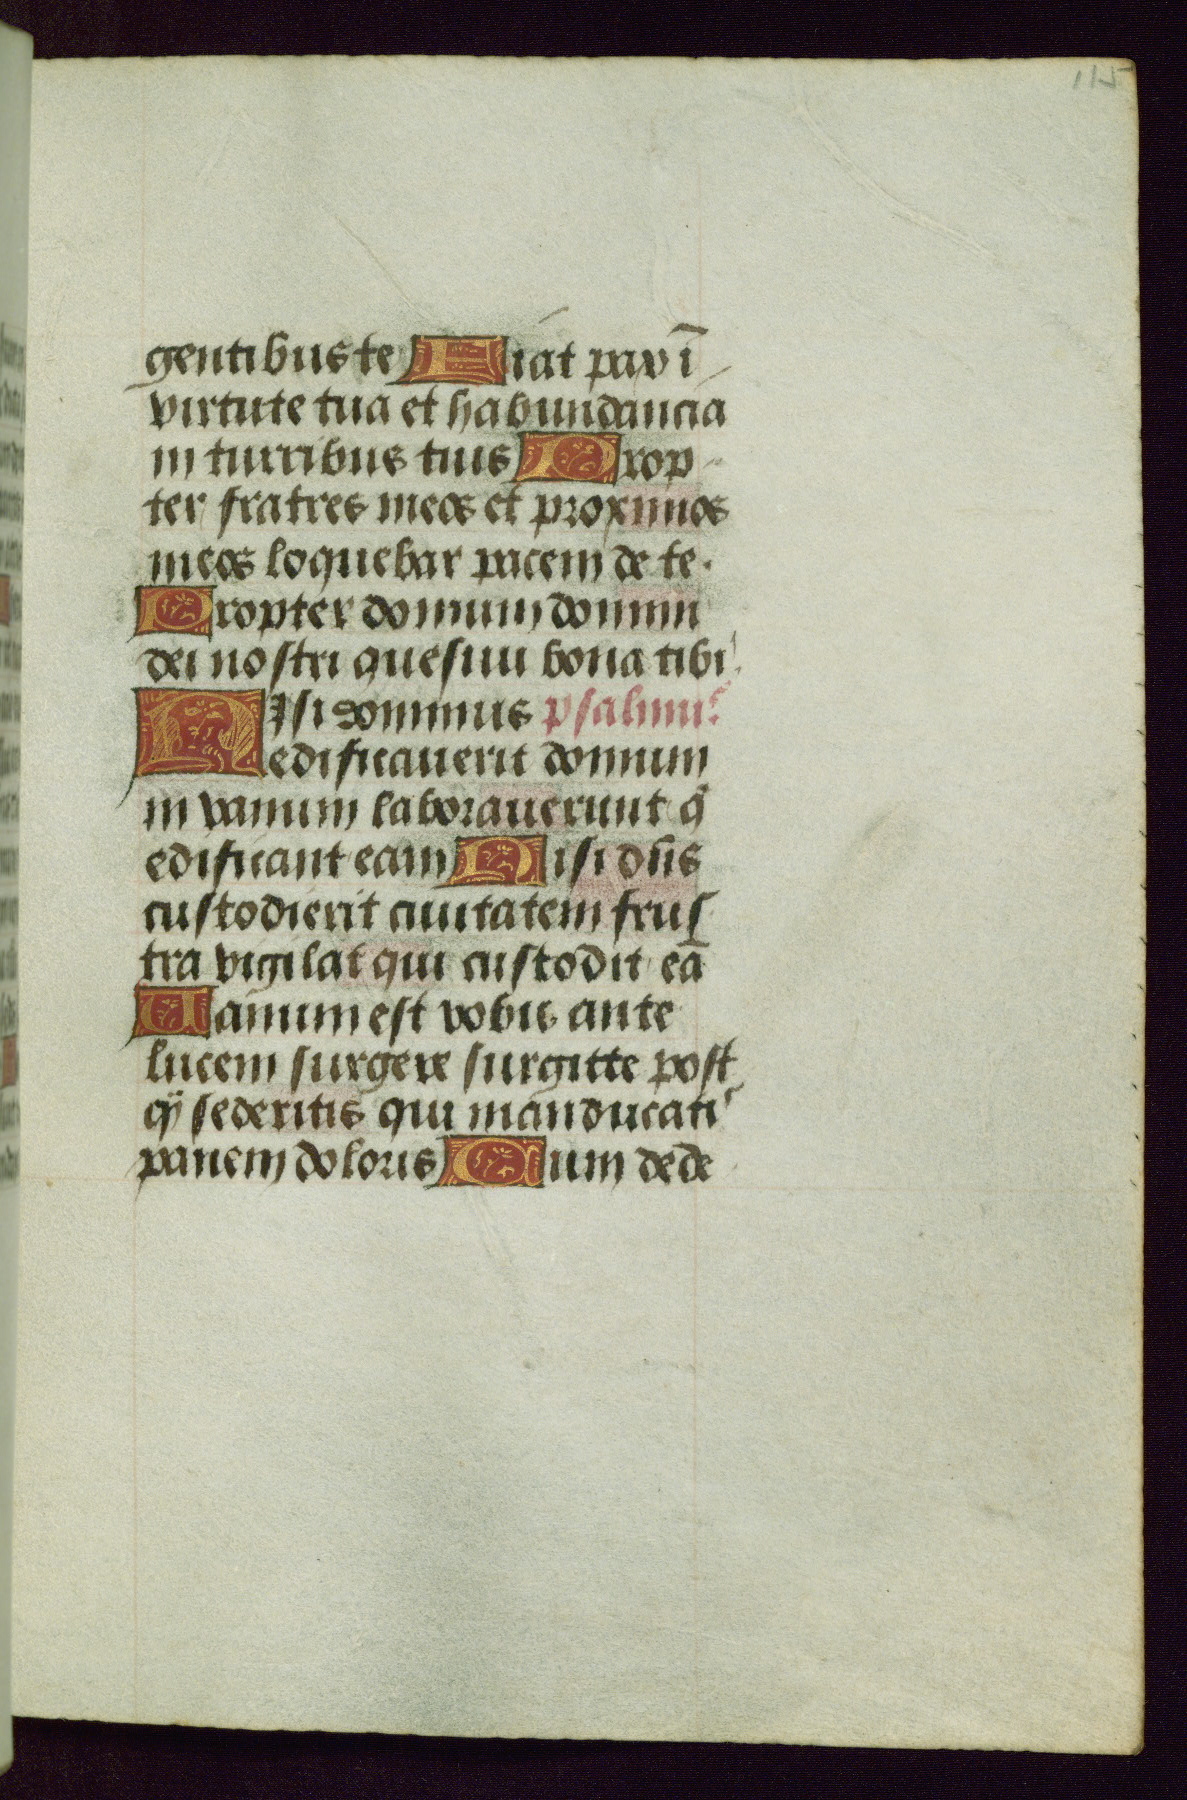 115
gentibus te Fiat pax ī
virtute tua et habundancia
in turribus tuis Prop
ter fratres meos et proximos
meos loquebar pacem de te.
Propter domum domini
dei nostri quesiui bona tibi
Nisi dominus psalmus
edificauerit domum
in vanum laborauerunt q̄
edificant eam Nisi dn̄s
custodierit ciuitatem frus
tra vigilat qui custodit eā
Uanum est vobis ante
lucem surgere surgitte post
q̄ sederitis qui manducatis
panem doloris Cum dede